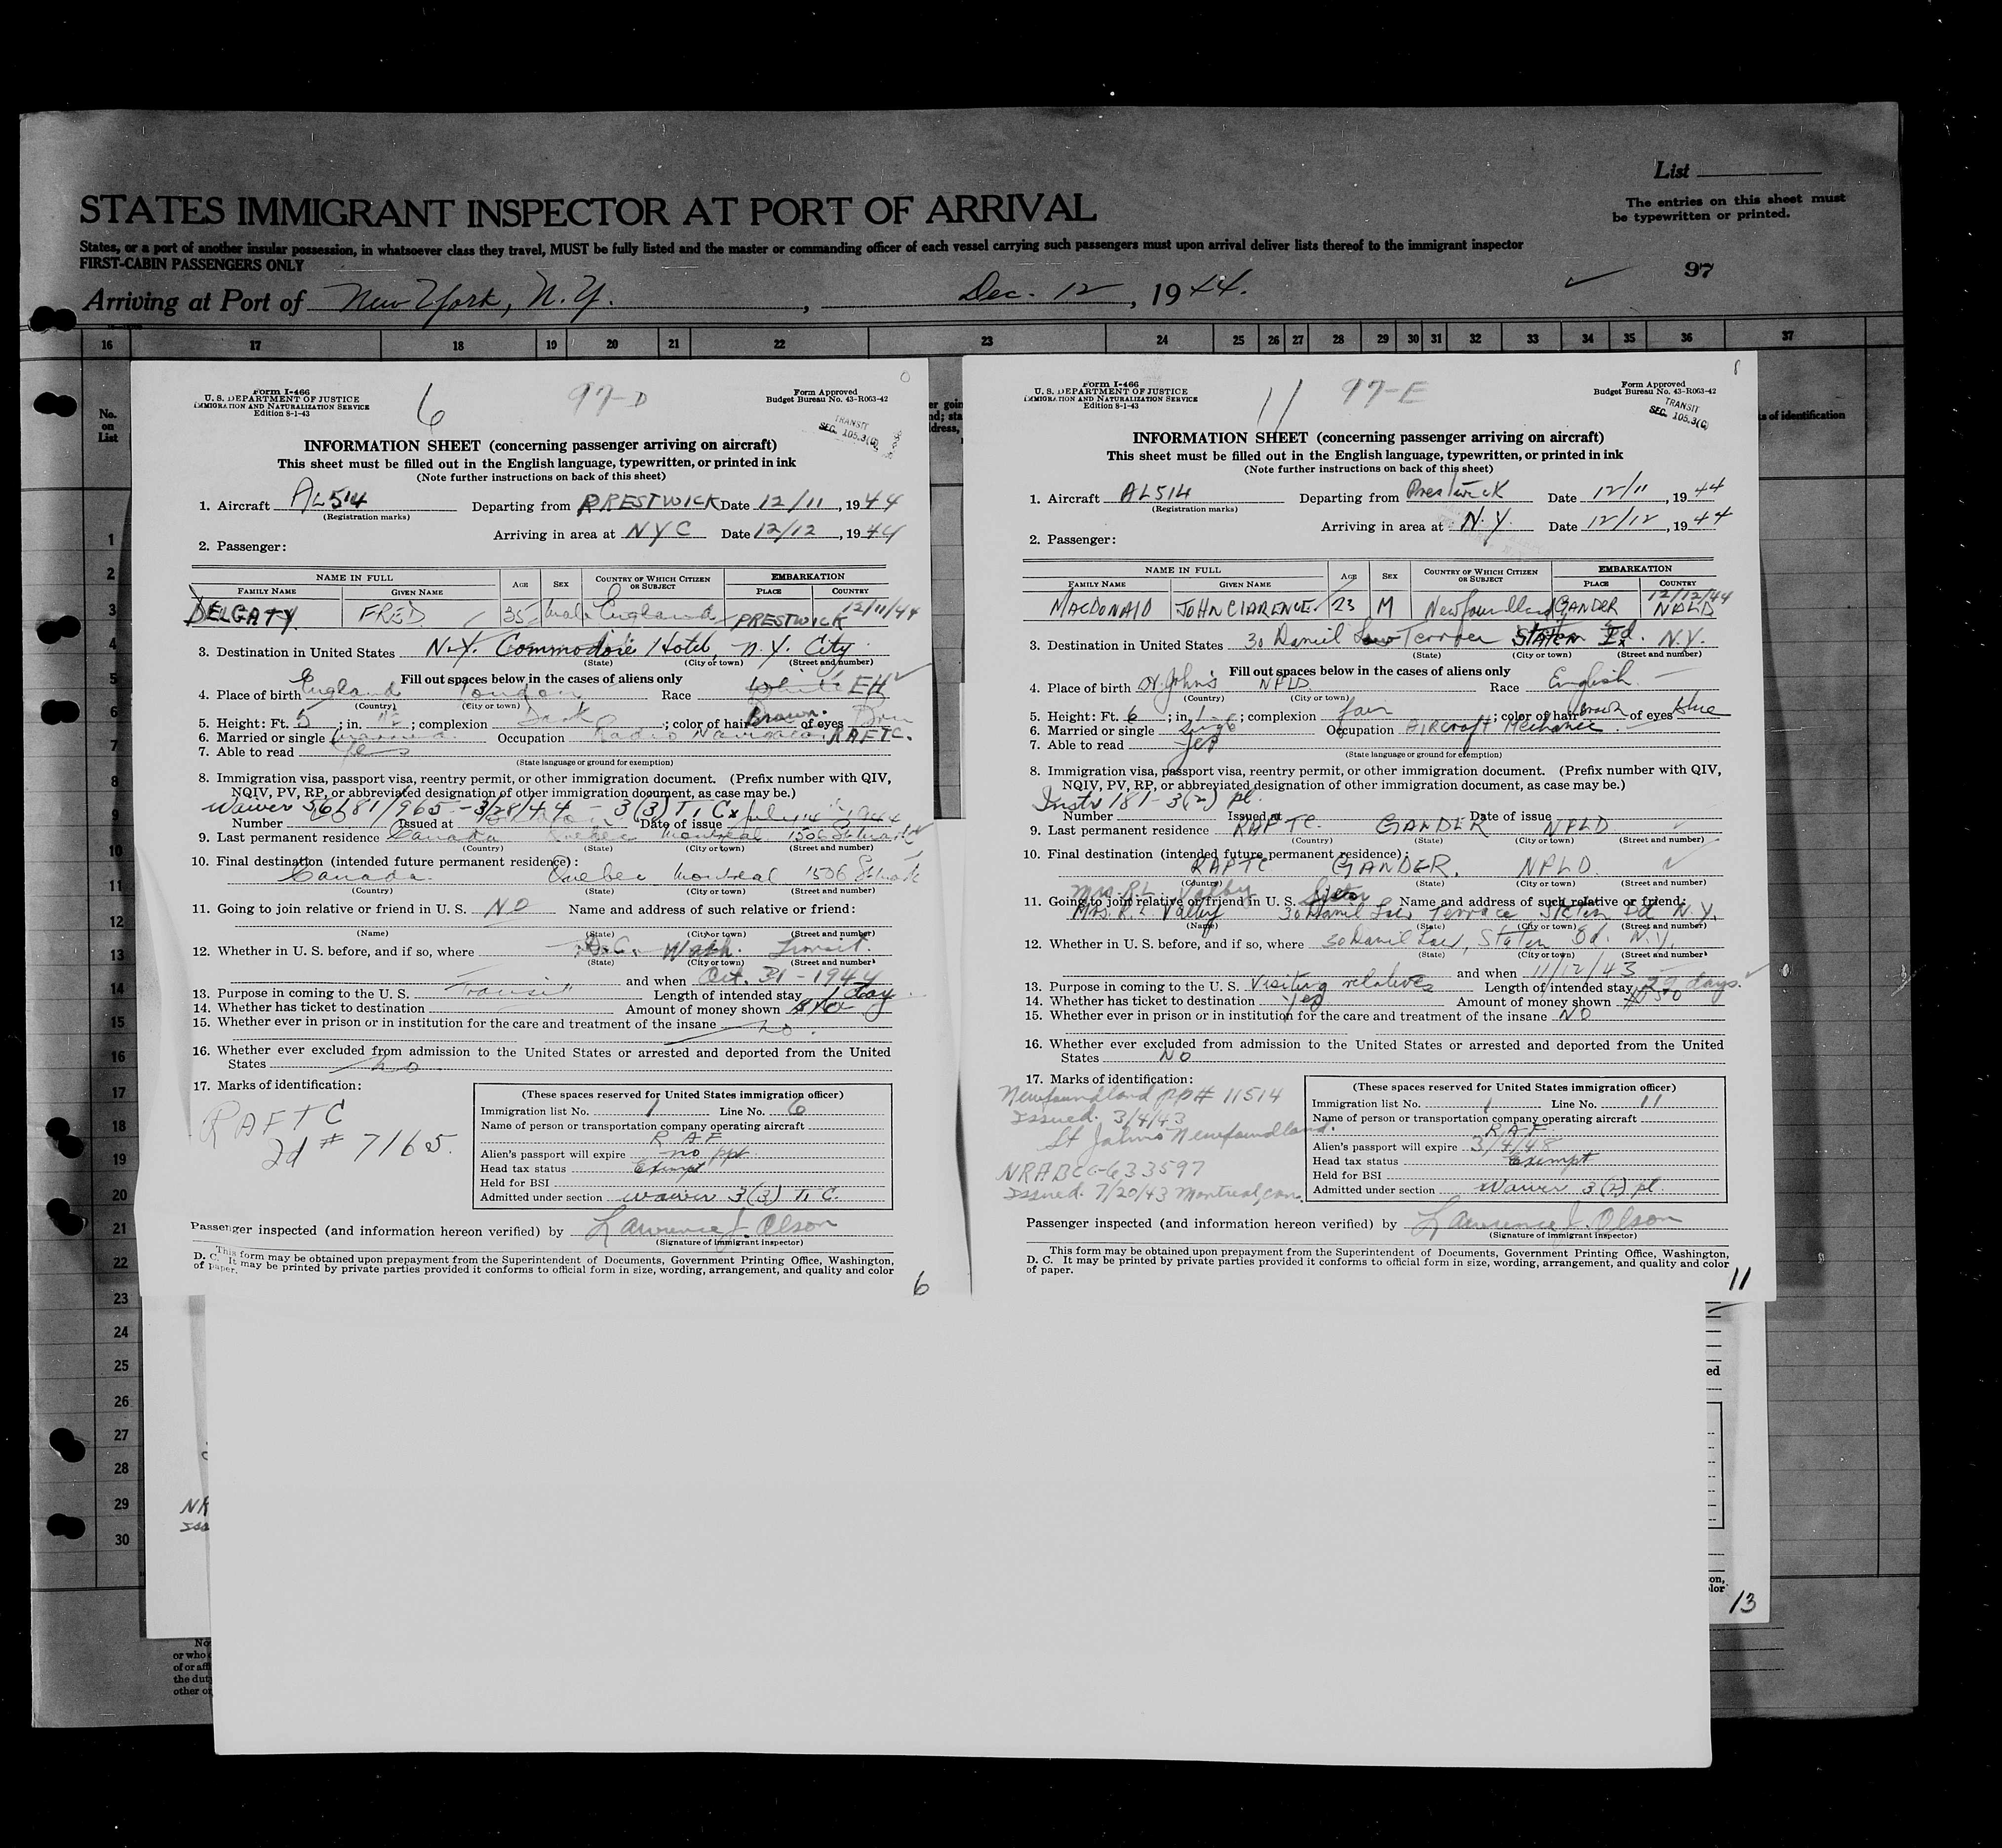 List
STATES IMMIGRANT INSPECTOR AT PORT OF ARRIVAL
The entries on this sheet must
be typewritten or printed.
States, or a port of another insular possession, in whatsoever class they travel, MUST be fully listed and the master or commanding officer of each vessel carrying such passengers must upon arrival deliver lists thereof to the immigrant inspector
FIRST-CABIN PASSENGERS ONLY
97
Arriving at Port of New York, N.Y. , Dec. 12 , 19 44.
16 17 18 19 20 21 22 23 24 25 26 27 28 29 30 31 32 33 34 35 36 37
No.
on
List
s of identification
1
2
3
4
5
6
7
8
9
10
11
12
13
14
15
16
17
18
19
20
21
22
23
24
25
26
27
28
29
30
Form I-466
U. S. DEPARTMENT OF JUSTICE
IMMIGRATION AND NATURALIZATION SERVICE
Edition 8-1-43
6
97-D
Form Approved
Budget Bureau No. 43-R063-42
TRANSIT
SEC. 105.3(C)
INFORMATION SHEET (concerning passenger arriving on aircraft)
This sheet must be filled out in the English language, typewritten, or printed in ink
(Note further instructions on back of this sheet)
1. Aircraft AL514 Departing from PRESTWICK Date 12/11, 1944
(Registration marks)
Arriving in area at NYC Date 12/12, 1944
2. Passenger:
NAME IN FULL AGE SEX COUNTRY OF WHICH CITIZEN OR SUBJECT EMBARKATION
FAMILY NAME GIVEN NAME PLACE COUNTRY
12/11/44
DELGATY FRED 35 Male England PRESTWICK
3. Destination in United States N.Y. Commodore Hotel, N.Y. City
(State) (City or town) (Street and number)
Fill out spaces below in the cases of aliens only
4. Place of birth England London Race White EH
(Country) (City or town)
5. Height: Ft. 5 ; in. ; complexion Dark ; color of hair Brown. of eyes Brn
6. Married or single Married Occupation Radio Navigator RAFTC.
7. Able to read Yes
(State language or ground for exemption)
8. Immigration visa, passport visa, reentry permit, or other immigration document. (Prefix number with QIV,
NQIV, PV, RP, or abbreviated designation of other immigration document, as case may be.)
Waiver 56181/965 - 3/28/44 - 3(3) T.C.
Number Issued at Date of issue July 1944
9. Last permanent residence Canada Quebec Montreal 1506
(Country) (State) (City or town) (Street and number)
10. Final destination (intended future permanent residence):
Canada. Quebec Montreal 1506
(Country) (State) (City or town) (Street and number)
11. Going to join relative or friend in U. S. NO Name and address of such relative or friend:
(Name) (State) (City or town) (Street and number)
12. Whether in U. S. before, and if so, where D.C. Wash. Transit.
(State) (City or town) (Street and number)
and when Oct. 31 - 1944
13. Purpose in coming to the U. S. Transit Length of intended stay 1 day
14. Whether has ticket to destination Amount of money shown
15. Whether ever in prison or in institution for the care and treatment of the insane no.
16. Whether ever excluded from admission to the United States or arrested and deported from the United
States no
17. Marks of identification:
RAFTC
Id # 7165.
(These spaces reserved for United States immigration officer)
Immigration list No. 1 Line No. 6
Name of person or transportation company operating aircraft
RAF
Alien's passport will expire no ppt.
Head tax status Exempt
Held for BSI
Admitted under section waiver 3(3) T.C.
Passenger inspected (and information hereon verified) by Lawrence J. Olson
(Signature of immigrant inspector)
This form may be obtained upon prepayment from the Superintendent of Documents, Government Printing Office, Washington,
D. C. It may be printed by private parties provided it conforms to official form in size, wording, arrangement, and quality and color
of paper.
6
Form I-466
U. S. DEPARTMENT OF JUSTICE
IMMIGRATION AND NATURALIZATION SERVICE
Edition 8-1-43
11
97-E
Form Approved
Budget Bureau No. 43-R063-42
TRANSIT
SEC. 105.3(C)
INFORMATION SHEET (concerning passenger arriving on aircraft)
This sheet must be filled out in the English language, typewritten, or printed in ink
(Note further instructions on back of this sheet)
1. Aircraft AL514 Departing from Prestwick Date 12/11, 1944
(Registration marks)
Arriving in area at N.Y. Date 12/12, 1944
2. Passenger:
NAME IN FULL AGE SEX COUNTRY OF WHICH CITIZEN OR SUBJECT EMBARKATION
FAMILY NAME GIVEN NAME PLACE COUNTRY
12/12/44
MACDONALD JOHN CLARENCE 23 M Newfoundland GANDER NFLD
3. Destination in United States 30 Daniel Low Terrace Staten Id. N.Y.
(State) (City or town) (Street and number)
Fill out spaces below in the cases of aliens only
4. Place of birth St. John's NFLD. Race English
(Country) (City or town)
5. Height: Ft. 6 ; in. 1 ; complexion fair ; color of hair brown of eyes blue
6. Married or single Single Occupation AIRCRAFT Mechanic.
7. Able to read yes
(State language or ground for exemption)
8. Immigration visa, passport visa, reentry permit, or other immigration document. (Prefix number with QIV,
NQIV, PV, RP, or abbreviated designation of other immigration document, as case may be.)
Instr 181 - 3(2) pl.
Number Issued at Date of issue
9. Last permanent residence RAFTC. GANDER NFLD.
(Country) (State) (City or town) (Street and number)
10. Final destination (intended future permanent residence):
RAFTC GANDER. NFLD.
(Country) (State) (City or town) (Street and number)
Mrs. R.L. Valby Sister
11. Going to join relative or friend in U. S. Name and address of such relative or friend:
Mrs. R. L. Valby 30 Daniel Low Terrace Staten Id N.Y.
(Name) (State) (City or town) (Street and number)
12. Whether in U. S. before, and if so, where 30 Daniel Low, Staten Id. N.Y.
(State) (City or town) (Street and number)
and when 11/12/43
13. Purpose in coming to the U. S. Visiting relatives Length of intended stay 29 days.
14. Whether has ticket to destination Yes Amount of money shown
15. Whether ever in prison or in institution for the care and treatment of the insane NO
16. Whether ever excluded from admission to the United States or arrested and deported from the United
States NO
17. Marks of identification:
Newfoundland pp# 11514
Issued. 3/4/43
St Johns Newfoundland.
NRABCG-633597
Issued. 7/20/43 Montreal, Can.
(These spaces reserved for United States immigration officer)
Immigration list No. 1 Line No. 11
Name of person or transportation company operating aircraft
RAF
Alien's passport will expire 3/4/48
Head tax status Exempt
Held for BSI
Admitted under section Waiver 3(2) pl
Passenger inspected (and information hereon verified) by Lawrence J. Olson
(Signature of immigrant inspector)
This form may be obtained upon prepayment from the Superintendent of Documents, Government Printing Office, Washington,
D. C. It may be printed by private parties provided it conforms to official form in size, wording, arrangement, and quality and color
of paper.
11
NR
ed
on,
lor
13
No
or who
of or aff
the dut
other o